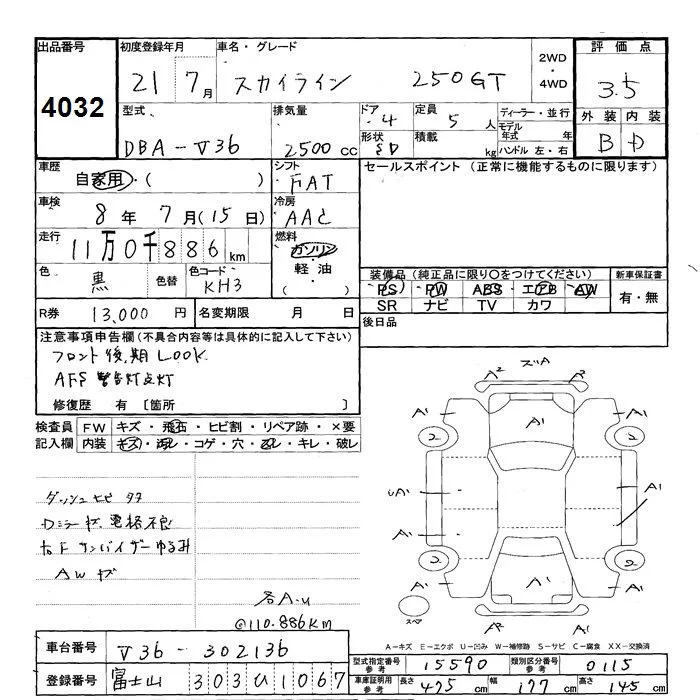 出品番号 初度登録年月 車名・グレード 2WD・4WD 評価点
4032 21 7月 スカイライン 250GT 3.5
型式 排気量 ドア・4 定員 5人 ディーラー・並行 外装 内装
DBA-V36 2500cc 形状 SD 積載 kg モデル年式 年 ハンドル 左・右 B D
車歴 自家用・( ) シフト FAT セールスポイント (正常に機能するものに限ります)
車検 8年 7月(15日) 冷房 AAC
走行 11万0千886km 燃料 ガソリン 軽油 ( )
色 黒 色替 色コード KH3
装備品 (純正品に限り○をつけてください) 新車保証書
PS PW ABS エアB AW 有・無
SR ナビ TV カワ
R券 13,000円 名変期限 月 日 後日品
注意事項申告欄(不具合内容等は具体的に記入して下さい)
フロント後期LOOK
AFS 警告灯点灯
修復歴 有 [箇所 ]
検査員 FW キズ・飛石・ヒビ割・リペア跡・×要
記入欄 内装 キズ・汚レ・コゲ・穴・スレ・キレ・破レ
ズリA
A² A²
A¹ A¹ A¹
2 2
UA¹ A¹ A¹
A¹ A¹
2 2
A¹ A¹ A¹
スペア A² A¹
ダッシュヒビ タタ
Dミラーキズ 電格不良
右F サンバイザーゆるみ
AWキズ
各A-u
@110.886KM
A-キズ E-エクボ U-凹み W-補修跡 S-サビ C-腐食 XX-交換済
車台番号 V36-302136
型式指定番号 参考 15590 類別区分番号 参考 0115
登録番号 富士山 303ひ1067
車庫証明用 参考 長さ 475cm 幅 177cm 高さ 145cm